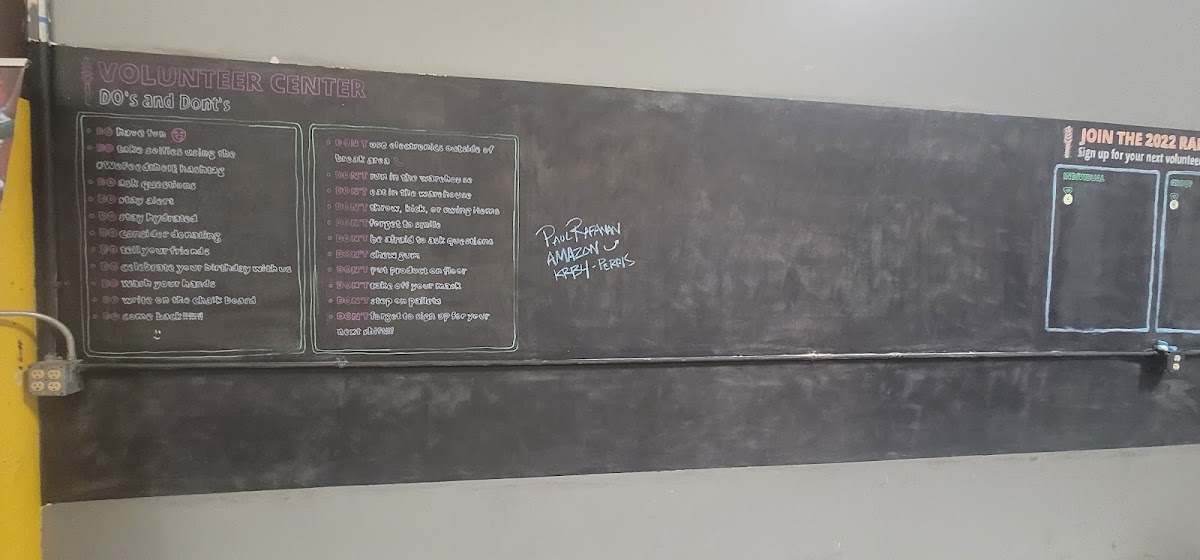 VOLUNTEER CENTER
DO's and Dont's
DO have fun
DO take selfies using the
#WeFeedtheIE hashtag
DO ask questions
DO stay alert
DO stay hydrated
DO consider donating
DO tell your friends
DO celebrate your birthday with us
DO wash your hands
DO write on the chalk board
DO come back!!!!!!
DON'T use electronics outside of
break area
DON'T run in the warehouse
DON'T eat in the warehouse
DON'T throw, kick, or swing items
DON'T forget to smile
DON'T be afraid to ask questions
DON'T chew gum
DON'T put product on floor
DON'T take off your mask
DON'T step on pallets
DON'T forget to sign up for your
next shift!!!!
PAUL RAFANAN
AMAZON
KRB4 - PERRIS
JOIN THE 2022 RA
Sign up for your next voluntee
INDIVIDUAL
GROUP